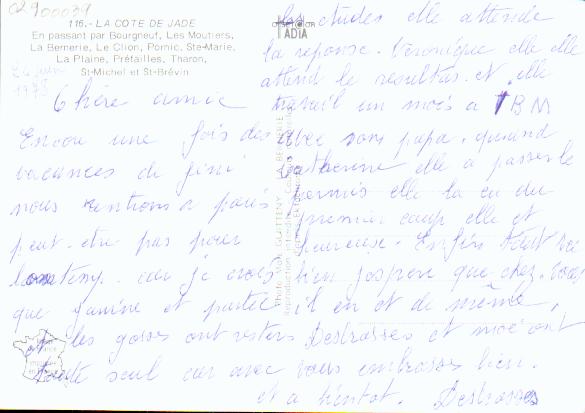 02900039
116.- LA COTE DE JADE
En passant par Bourgneuf, Les Moutiers,
La Bernerie, Le Clion, Pornic, Ste-Marie,
La Plaine, Préfailles, Tharon,
St-Michel et St-Brévin
Chère amie
Encore une fois des
vacances de fini
nous rentrons a paris
peut-etre pas pour
car je crois
que janine et partie
et les gosses ont resters
toute seul car avec
les etudes elle attende
la reponse. Véronique elle elle
attend le resultas. et elle
travail un mois a IBM
avec son papa. quand
Catherine elle a passer le
permis elle la eu du
premier coup elle et
heureuse. Enfin tout va
bien j'espere que chez-vous
il en et de même,
Destrasses et moé ont
vous embrasses bien.
et a bientot. Destrasses